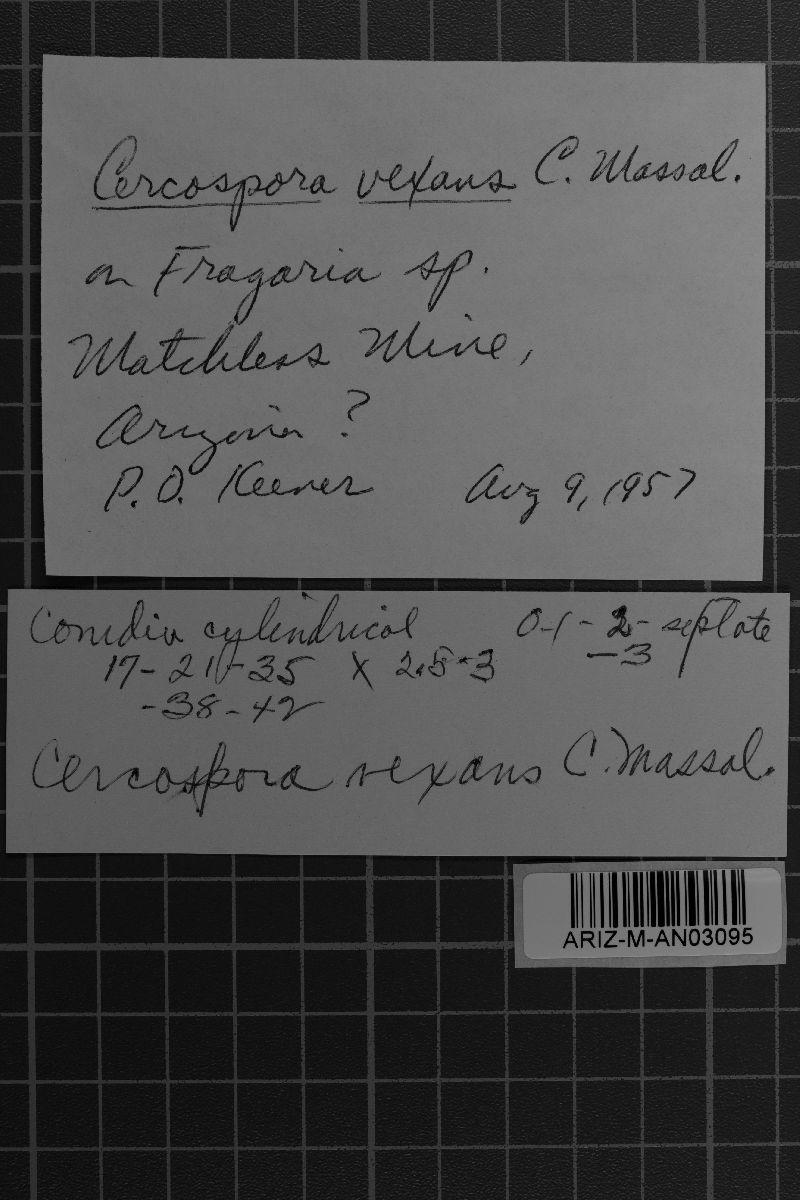 Cercospora vexans C. Massal.
on Fragaria sp.
Matchless Mine,
Arizona ?
P. D. Keener Aug 9, 1957
Conidia cylindrical 0-1-2- septate
-3
17-21-35 X 2.5-3
-38-42
Cercospora vexans C. Massal.
ARIZ-M-AN03095